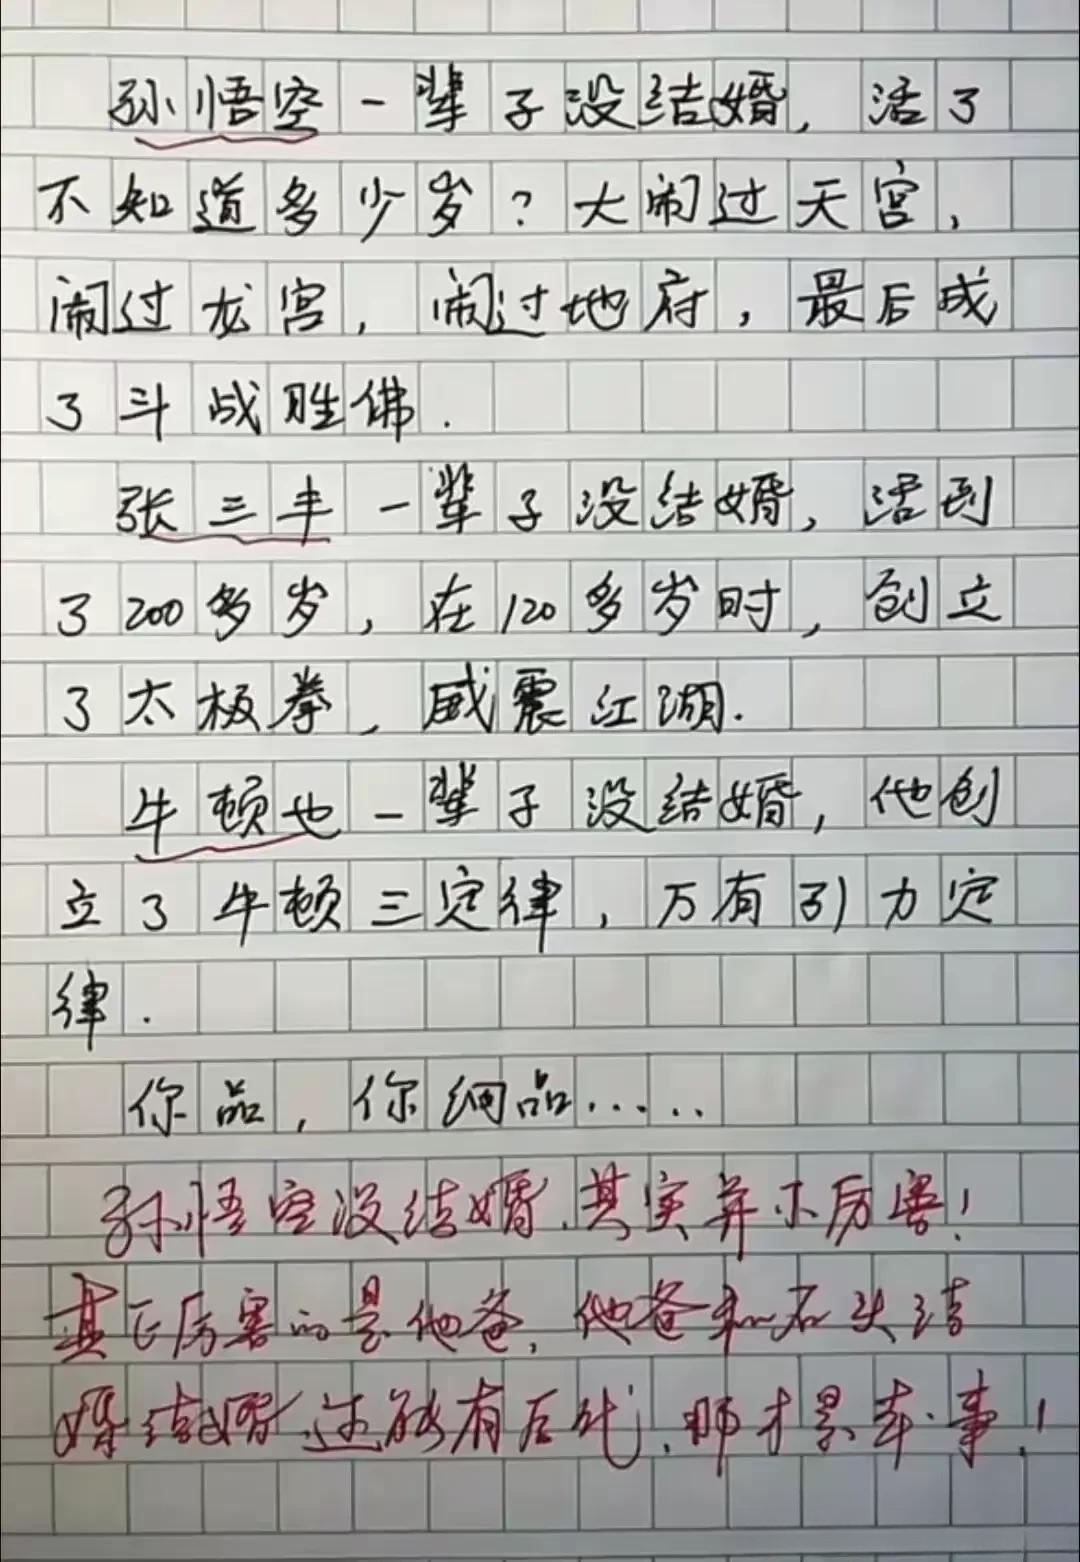 孙悟空一辈子没结婚，活了
不知道多少岁？大闹过天宫，
闹过龙宫，闹过地府，最后成
了斗战胜佛.
张三丰一辈子没结婚，活到
了200多岁，在120多岁时，创立
了太极拳，威震江湖.
牛顿也一辈子没结婚，他创
立了牛顿三定律，万有引力定
律.
你品，你细品......
孙悟空没结婚,其实并不厉害！
真正厉害的是他爸,他爸和石头结
婚结婚还能有后代,那才是本事！